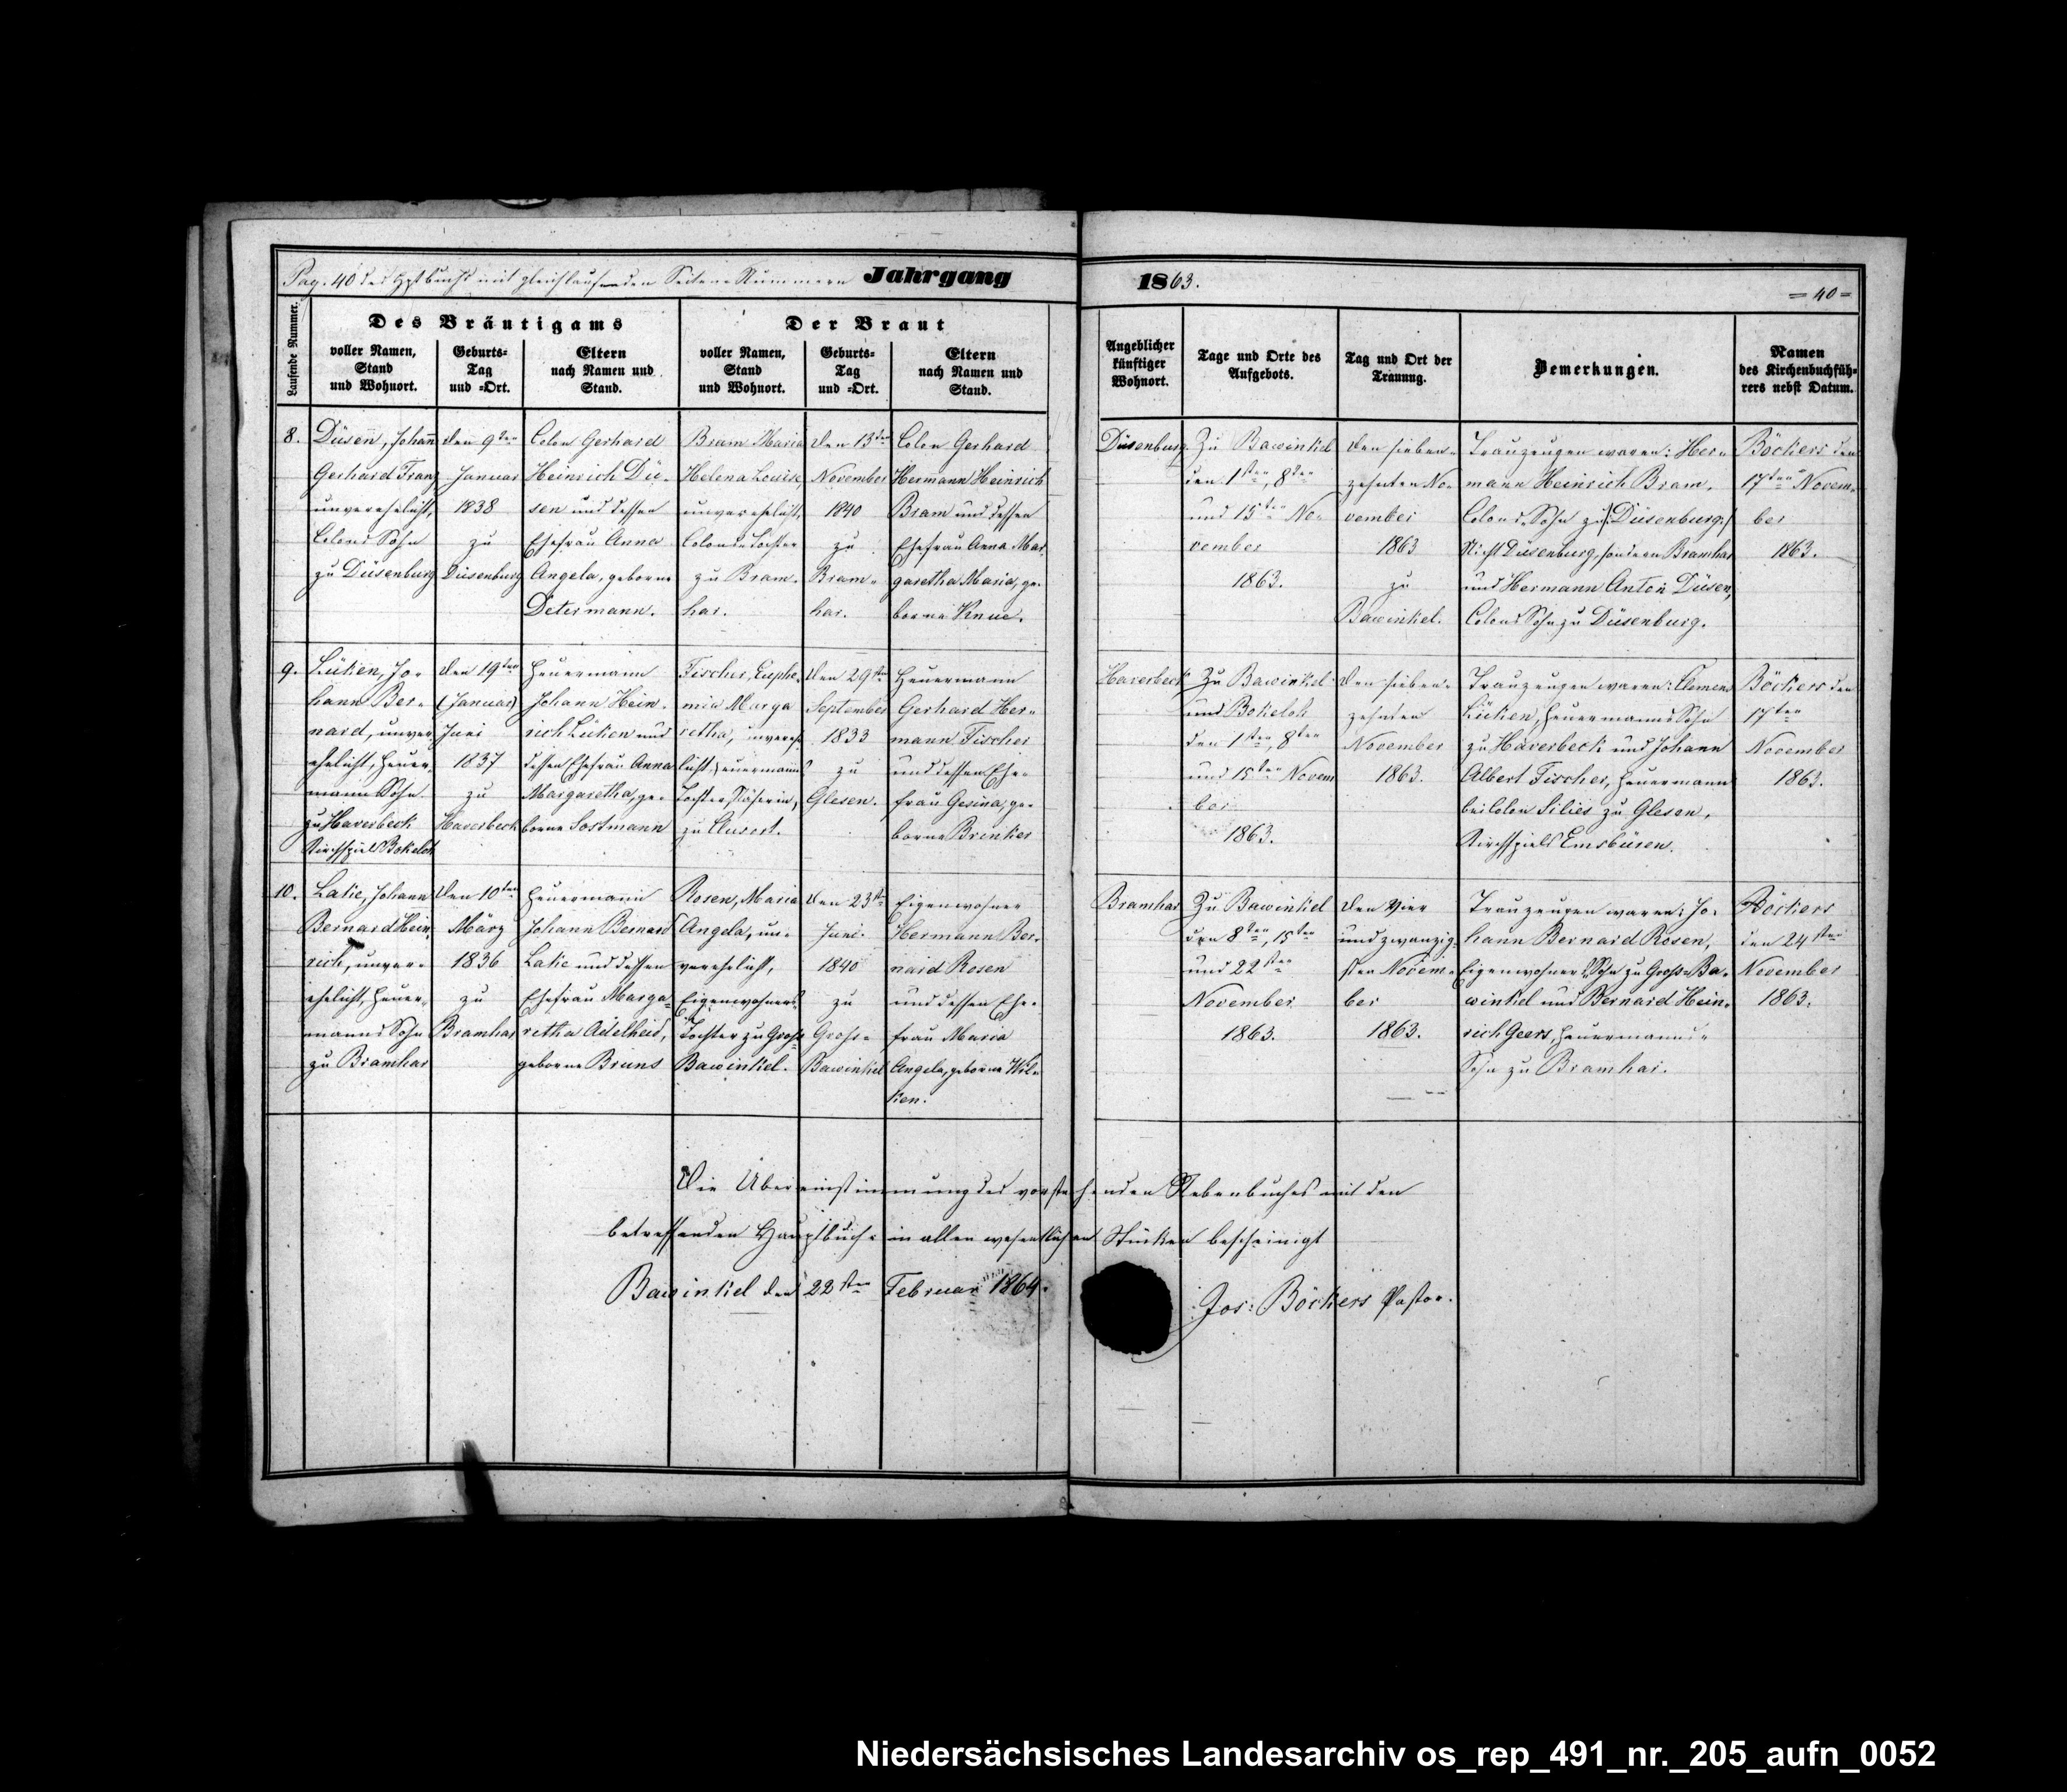 Pag. 40 des Hptbuchs mit gleichlaufenden Seiten-Nummern Jahrgang 1863.
= 40 =
Laufende Nummer.
Des Bräutigams
voller Namen,
Stand
und Wohnort.
Geburts=
Tag
und =Ort.
Eltern
nach Namen und
Stand.
Der Braut
voller Namen,
Stand
und Wohnort.
Geburts=
Tag
und =Ort.
Eltern
nach Namen und
Stand.
Angeblicher
künftiger
Wohnort.
Tage und Orte des
Aufgebots.
Tag und Ort der
Trauung.
Bemerkungen.
Namen
des Kirchenbuchfüh=
rers nebst Datum.
8.
Düsen, Johann
Gerhard Franz
unverehelicht,
Colons Sohn
zu Düsenburg
den 9ten
Januar
1838
zu
Düsenburg
Colon Gerhard
Heinrich Dü-
sen und dessen
Ehefrau Anna
Angela, geborne
Determann.
Bram Maria
Helena Louise,
unverehelicht,
Colons Tochter
zu Bram-
har.
den 13ten
November
1840
zu
Bram-
har.
Colon Gerhard
Hermann Heinrich
Bram und dessen
Ehefrau Anna Mar-
garetha Maria, ge-
borne Knue.
Düsenburg.
Zu Bawinkel
den 1sten, 8ten
und 15ten No-
vember
1863.
den sieben-
zehnten No-
vember
1863
zu
Bawinkel.
Trauzeugen waren: Her-
mann Heinrich Bram,
Colons Sohn zu (:Düsenburg:)
Nicht Düsenburg, sondern Bramhar
und Hermann Anton Düsen,
Colons Sohn zu Düsenburg.
Böckers den
17ten Novem-
ber
1863.
9.
Lüken, Jo-
hann Ber-
nard, unver-
ehelicht, Heuer-
manns Sohn
zu Haverbeck
Kirchspiels Bokeloh
den 19ten
(Januar)
Juni
1837
zu
Haverbeck
Heuermann
Johann Hein-
rich Lüken und
dessen Ehefrau Anna
Margaretha, ge-
borne Sostmann
Fischer, Euphe-
mia Marga
retha, unvereh-
licht, Heuermanns
Tochter,
zu Clusort.
den 29sten
September
1833
zu
Glesen.
Heuermann
Gerhard Her-
mann Fischer
und dessen Ehe-
frau Gesina, ge-
borne Brinker
Haverbeck
Zu Bawinkel
und Bokeloh
den 1sten, 8ten
und 15ten Novem
ber
1863.
den sieben-
zehnten
November
1863.
Trauzeugen waren: Clemens
Lüken, Heuermanns Sohn
zu Haverbeck und Johann
Albert Fischer, Heuermann
bei Colon Silies zu Glesen,
Kirchspiels Emsbüren.
Böckers den
17ten
November
1863.
10.
Lakie, Johann
Bernard Hein-
rich, unver-
ehelicht, Heuer-
manns Sohn
zu Bramhar
den 10ten
März
1836
zu
Bramhar
Heuermann
Johann Bernard
Lakie und dessen
Ehefrau Marga-
retha Adelheid,
geborne Bruns
Rosen, Maria
Angela, un-
verehelicht,
Eigenwohners
Tochter zu Gross-
Bawinkel.
den 23sten
Juni
1840
zu
Gross-
Bawinkel
Eigenwohner
Hermann Ber-
nard Rosen
und dessen Ehe-
frau Maria
Angela, geborne Wil-
ken.
Bramhar
Zu Bawinkel
den 8ten, 15ten
und 22sten
November
1863.
den vier
und zwanzig-
sten Novem-
ber
1863.
Trauzeugen waren: Jo-
hann Bernard Rosen,
Eigenwohners Sohn zu Gross-Ba-
winkel und Bernard Hein-
rich Geers, Heuermanns-
Sohn zu Bramhar.
Böckers
den 24sten
November
1863.
Die Übereinstimmung des vorstehenden Nebenbuches mit den
betreffenden Hauptbuch in allen wesentlichen Stücken bescheinigt
Bawinkel den 22sten Februar 1864.
Jos: Böckers Pastor.
Niedersächsisches Landesarchiv os_rep_491_nr._205_aufn_0052